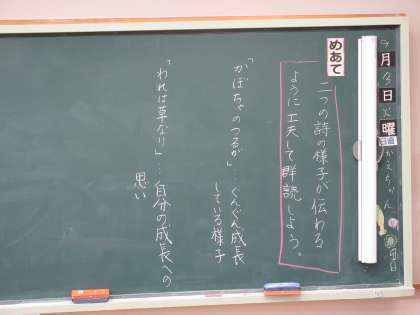 月
日
曜
日直
めあて
二つの詩の様子が伝わる
ように工夫して群読しよう。
「かぼちゃのつるが」…ぐんぐん成長
している様子
「われは草なり」…自分の成長への
思い